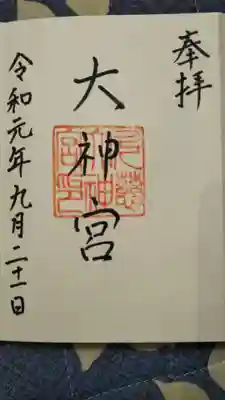 奉拝
大神宮
令和元年九月二十一日